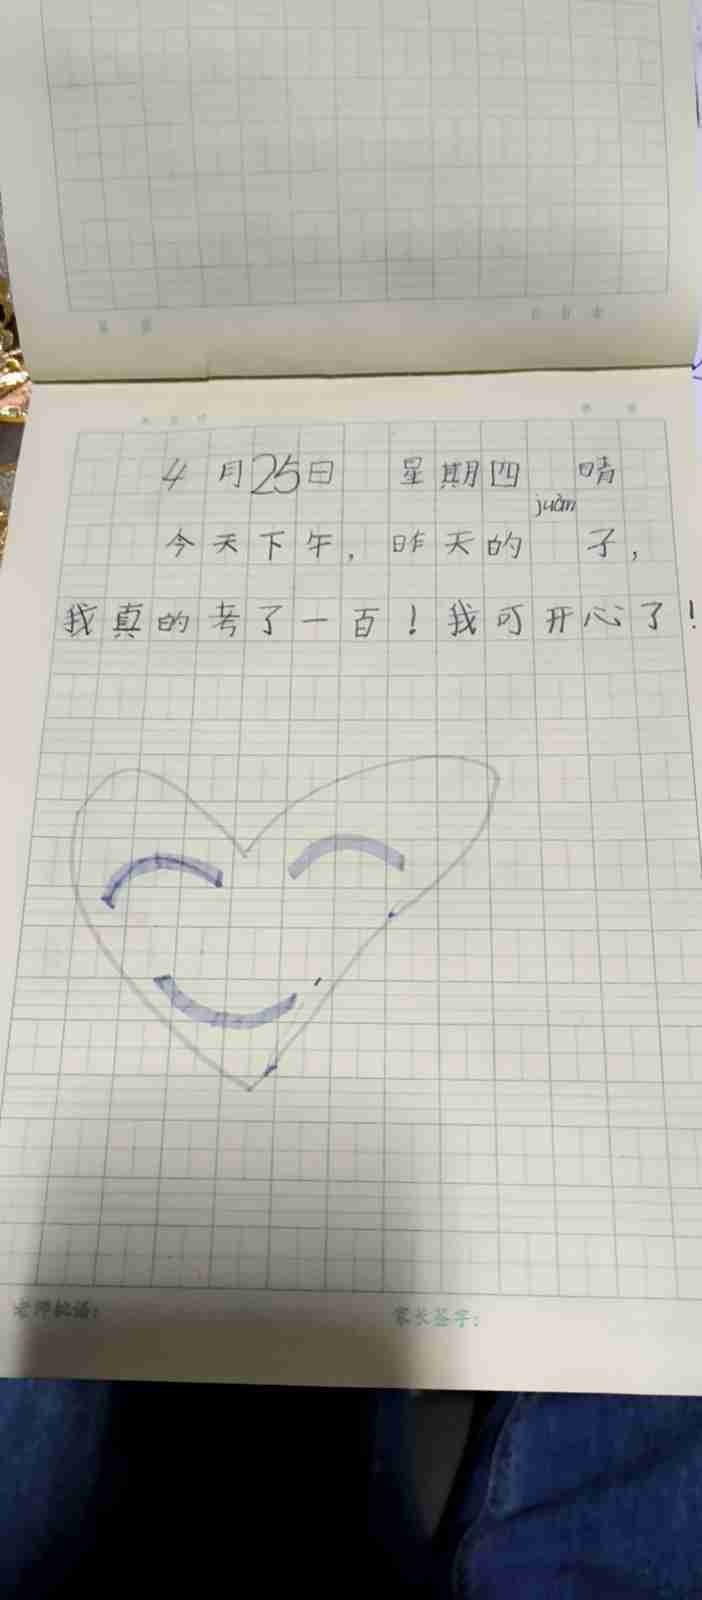 4月25日 星期四 晴
juàn
今天下午，昨天的 子，
我真的考了一百！我可开心了！
老师批语： 家长签字：